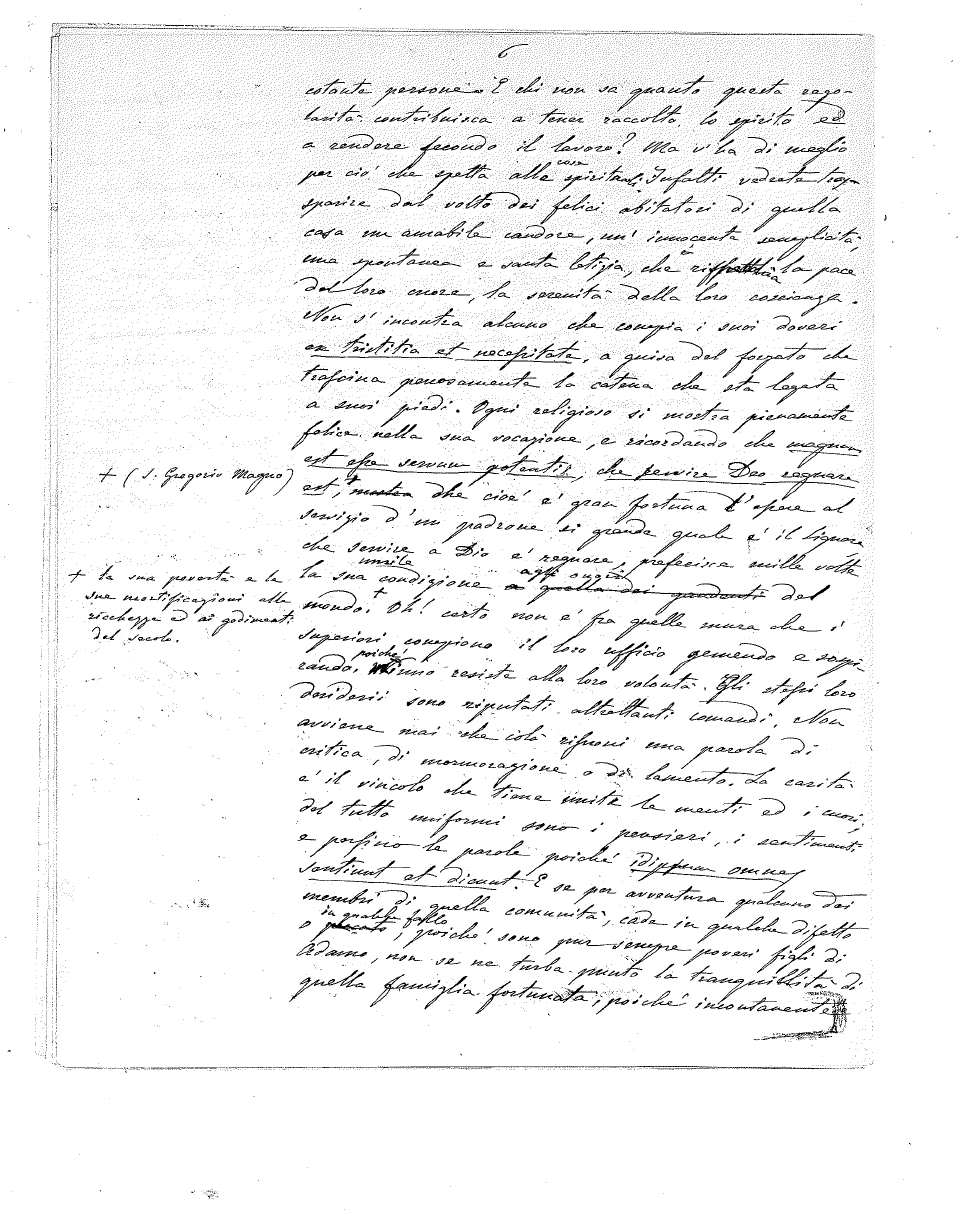 6
cotante persone. E chi non sa quanto questa rego-
larità contribuisca a tener raccolto lo spirito ed
a rendere fecondo il lavoro? Ma v'ha di meglio
per ciò che spetta alle cose spirituali. Infatti vedrete tras-
parire dal volto dei felici abitatori di quella
casa un amabile candore, un' innocente semplicità,
una spontanea e santa letizia, che è la pace
del loro cuore, la serenità della loro coscienza.
Non s' incontra alcuno che compia i suoi doveri
ex tristitia et necessitate, a guisa del forzato che
trascina penosamente la catena che sta legata
a suoi piedi. Ogni religioso si mostra pienamente
felice nella sua vocazione, e ricordando che magnum
est esse servum potentis, che servire Deo regnare
+ (S. Gregorio Magno)
est, + mostra che cioè è gran fortuna l' essere al
servizio d' un padrone sì grande quale è il Signore
che servire a Dio è regnare, preferisce mille volte
la sua umile condizione agli onori a quella dei gaudenti del
+ la sua povertà e le
sue mortificazioni alle
ricchezze ed ai godimenti
del secolo.
mondo. + Oh! certo non è fra quelle mura che i
superiori compiono il loro ufficio gemendo e sospi-
rando. poichè niuno resiste alla loro volontà. Gli stessi loro
desiderii sono riputati altrettanti comandi. Non
avviene mai che colà risuoni una parola di
critica, di mormorazione o di lamento. La carità
è il vincolo che tiene unite le menti ed i cuori;
del tutto uniformi sono i pensieri, i sentimenti
e persino le parole poichè idipsum omnes
sentiunt et dicunt. E se per avventura qualcuno dei
membri di quella comunità, cade in qualche difetto
o in qualche fallo peccato, poichè sono pur sempre poveri figli di
Adamo, non se ne turba punto la tranquillità di
quella famiglia fortunata; poichè incontanente